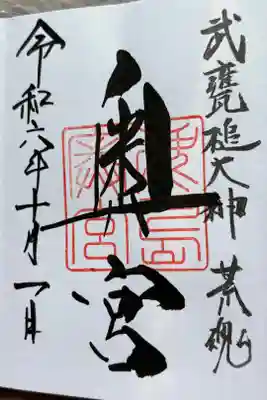 武甕槌大神 荒魂
奥宮
令和六年十月一日